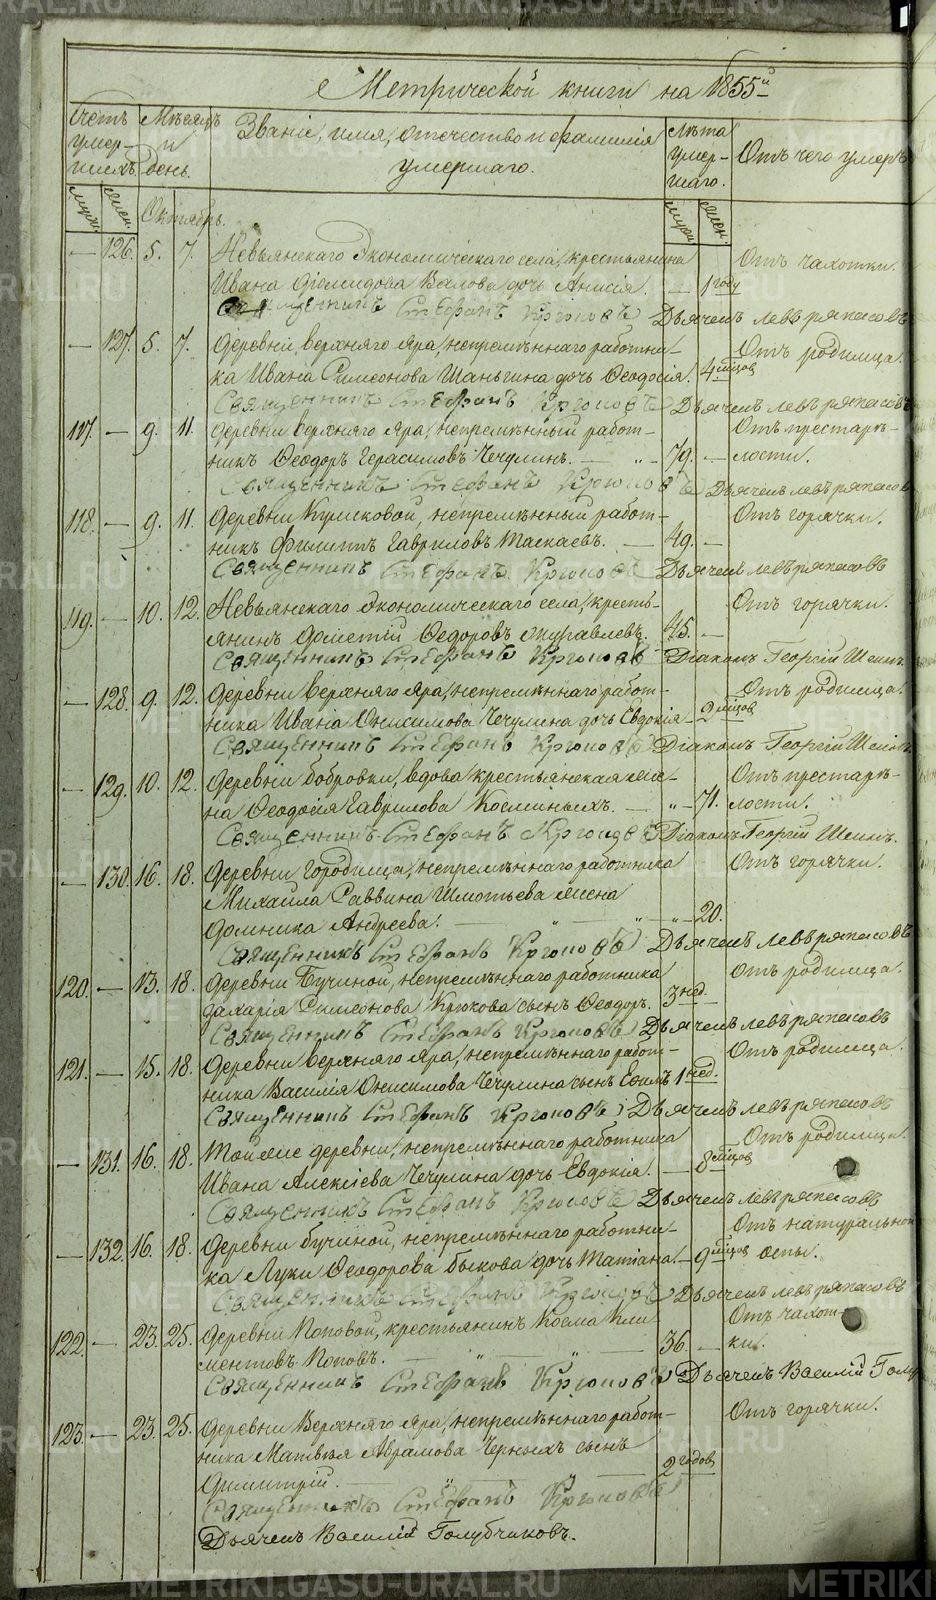 Метрической книги на 1855й
Счетъ умер-шихъ.
Мѣсяцъ и день.
Званіе, имя, отечество и фамилія умершаго.
Лѣта умер-шаго.
Отъ чего умеръ
муж. жен.
Октябрь.
муж. жен.
— 126. 5. 7. Невьянскаго Экономическаго села, крестьянина Отъ чахотки.
Ивана Діомидова Валова дочь Анисія. — 1 году
Священникъ Стефанъ Крюковъ Дьячекъ Левъ Ряпасовъ
— 127. 5. 7. Деревни Верхняго Яра, непремѣннаго работни- Отъ родимца.
ка Ивана Симеонова Шаньгина дочь Ѳеодосія. 4 мѣсяцов
Священникъ Стефанъ Крюковъ Дьячекъ Левъ Ряпасовъ
117. — 9. 11. Деревни Верхняго Яра, непремѣнный работ- Отъ престарѣ-
никъ Ѳеодоръ Герасимовъ Чечулинъ. — „ — 79. — лости.
Священникъ Стефанъ Крюковъ Дьячекъ Левъ Ряпасов
118. — 9. 11. Деревни Кулисковой, непремѣнный работ- Отъ горячки.
никъ Филиппъ Гавриловъ Таскаевъ. — 49. —
Священникъ Стефанъ Крюковъ Дьячекъ Левъ Ряпасовъ
119. — 10. 12. Невьянскаго Экономическаго села, кресть- Отъ горячки.
янинъ Дометій Ѳедоровъ Журавлевъ. 45. —
Священникъ Стефанъ Крюковъ Діаконъ Георгій Шеинъ.
— 128. 9. 12. Деревни Верхняго Яра, непремѣннаго работ- Отъ родимца.
ника Ивана Онисимова Чечулина дочь Евдокія — 2 мѣсяцов
Священникъ Стефанъ Крюковъ Діаконъ Георгій Шеинъ
— 129. 10. 12. Деревни Бобровки, вдова, крестьянская же- Отъ престарѣ-
на Ѳеодосія Гаврилова Косминыхъ. — „ — 71. лости.
Священникъ Стефанъ Крюковъ Діаконъ Георгій Шеинъ.
— 130. 16. 18. Деревни Городища, непремѣннаго работника Отъ горячки.
Михаила Саввина Шмотьева жена
Домника Андреева. — „ — „ — 20.
Священникъ Стефанъ Крюковъ Дьячекъ Левъ Ряпасовъ
120. — 13. 18. Деревни Бучиной, непремѣннаго работника Отъ родимца.
Захарія Симеонова Крюкова сынъ Ѳеодоръ. 3 нед.
Священникъ Стефанъ Крюковъ Дьячекъ Левъ Ряпасовъ
121. — 15. 18. Деревни Верхняго Яра, непремѣннаго работ- Отъ родимца.
ника Василія Онисимова Чечулина сынъ Ефимъ 1 нед.
Священникъ Стефанъ Крюковъ Дьячекъ Левъ Ряпасовъ
— 131. 16. 18. Той же деревни, непремѣннаго работника Отъ родимца.
Ивана Алексіева Чечулина дочь Евдокія. — 8 мѣсяцов
Священникъ Стефанъ Крюковъ Дьячекъ Левъ Ряпасовъ
— 132. 16. 18. Деревни Бучиной, непремѣннаго работни- Отъ натуральной
ка Луки Ѳеодорова Быкова дочь Татіана. — 9 мѣсяцов оспы.
Священникъ Стефанъ Крюковъ Дьячекъ Левъ Ряпасовъ
122. — 23. 25. Деревни Поповой, крестьянинъ Косма Кли- Отъ чахот-
ментовъ Поповъ. — „ — „ — 36. — ки.
Священникъ Стефанъ Крюковъ Дьячекъ Василій Голу
123. — 23. 25. Деревни Верхняго Яра, непремѣннаго работ- Отъ горячки.
ника Матвѣя Аврамова Черныхъ сынъ
Димитрій. — „ — „ — 2 годов
Священникъ Стефанъ Крюковъ
Дьячекъ Василій Голубчиковъ.
METRIKI.GASO-URAL.RU